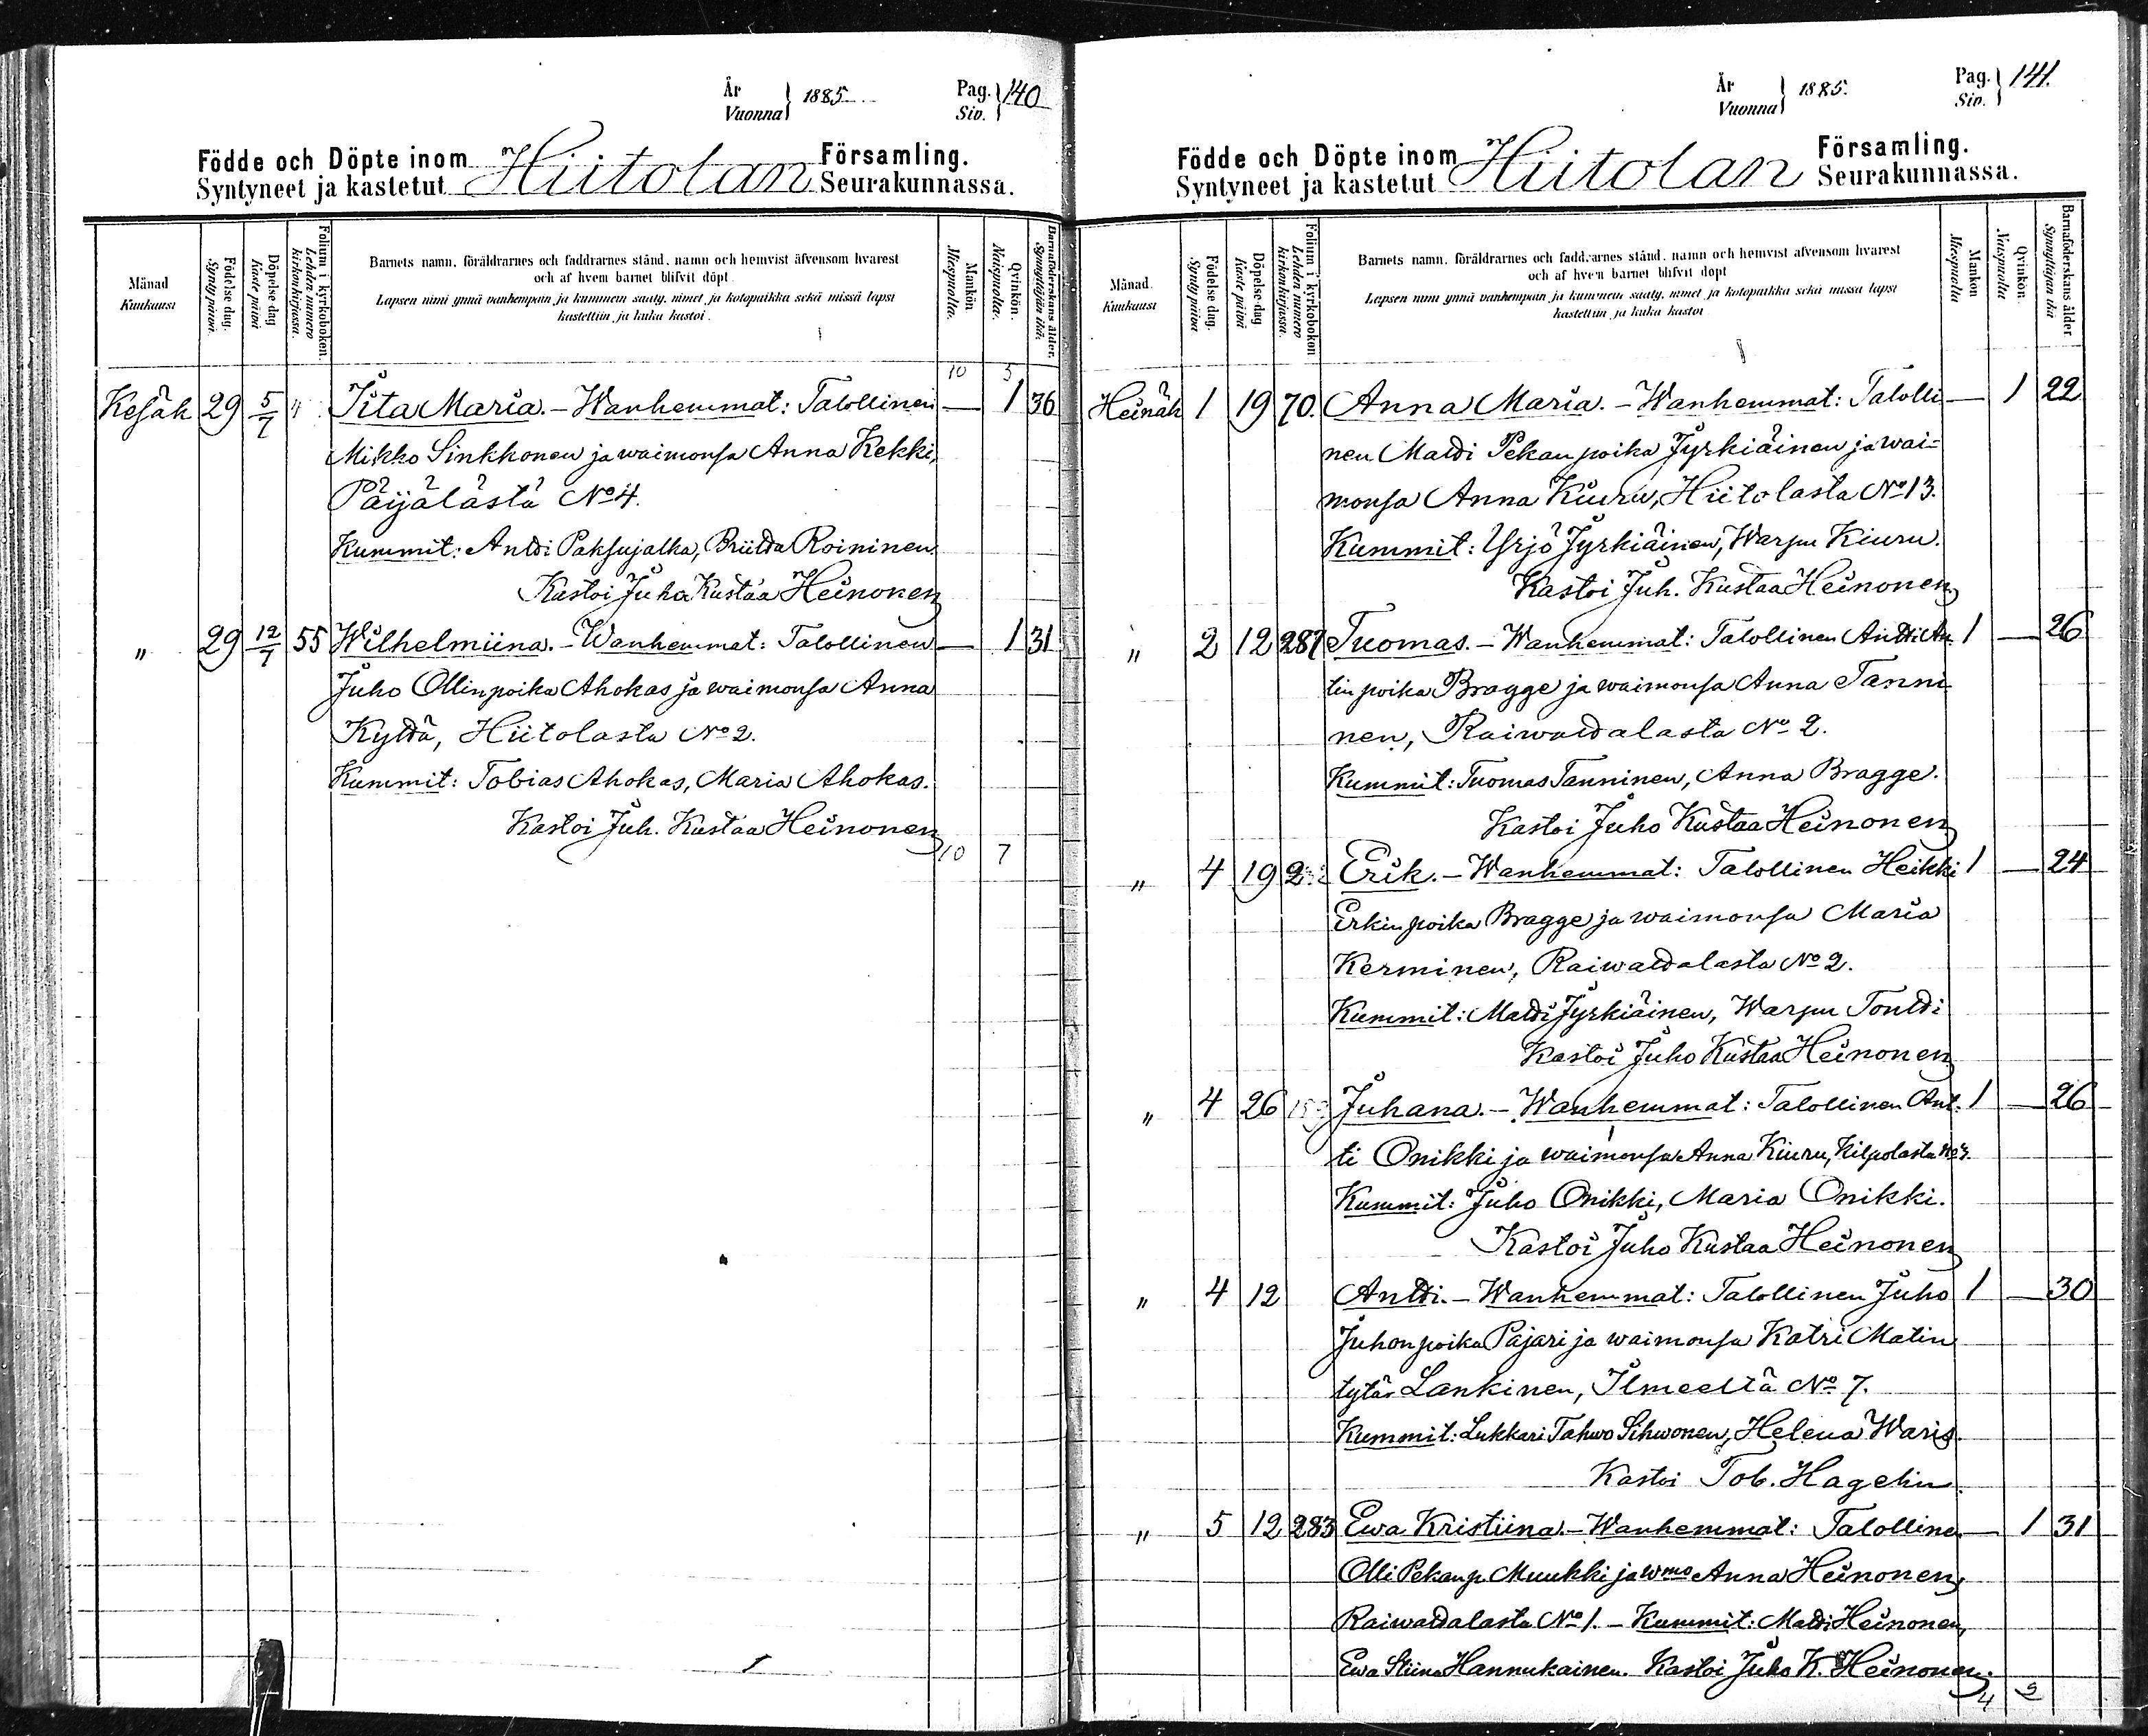 År
Vuonna } 1885
Pag.
Siv. } 140
Födde och Döpte inom Hiitolan Församling.
Syntyneet ja kastetut Seurakunnassa.
Månad
Kuukausi
Födelse dag.
Synty päivä.
Döpelse dag
Kaste päivä
Folium i kyrkoboken.
Lehden numero kirkonkirjassa.
Barnets namn, föräldrarnes och faddrarnes stånd, namn och hemvist äfvensom hvarest
och af hvem barnet blifvit döpt
Lapsen nimi ynnä vanhempain ja kummein sääty, nimet ja kotopaikka sekä missä lapsi
kastettiin ja kuka kastoi.
Mankön
Miespuolta.
Qvinkön.
Naispuolta.
Barnaföderskans ålder.
Synnyttäjän ikä.
10 5
Kesäk 29 5/7 4 Iita Maria. – Wanhemmat: Talollinen — 1 36
Mikko Sinkkonen ja waimonsa Anna Kekki,
Päijälästä No 4.
Kummit: Antti Paksujalka, Briitta Roininen.
Kastoi Juho Kustaa Heinonen
" 29 12/7 55 Wilhelmiina. – Wanhemmat: Talollinen — 1 31
Juho Ollinpoika Ahokas ja waimonsa Anna
Kyttä, Hiitolasta No 2.
Kummit: Tobias Ahokas, Maria Ahokas.
Kastoi Juh. Kustaa Heinonen
10 7
År
Vuonna } 1885.
Pag.
Siv. } 141.
Födde och Döpte inom Hiitolan Församling.
Syntyneet ja kastetut Seurakunnassa.
Månad.
Kuukausi
Födelse dag.
Synty päivä
Döpelse-dag
Kaste päivä
Folium i kyrkoboken
Lehden numero kirkonkirjassa.
Barnets namn, föräldrarnes och faddrarnes stånd, namn och hemvist äfvensom hvarest
och af hvem barnet blifvit döpt
Lapsen nimi ynnä vanhempain ja kummein sääty, nimet ja kotopaikka sekä missä lapsi
kastettiin ja kuka kastoi
Mankön
Miespuolta
Qvinkön.
Naispuolta
Barnaföderskans ålder
Synnyttäjän ikä
Heinäk 1 19 70. Anna Maria. – Wanhemmat: Talolli — 1 22
nen Matti Pekanpoika Jyrkiäinen ja wai=
monsa Anna Kiuru, Hiitolasta No 13.
Kummit: Yrjö Jyrkiäinen, Warpu Kiuru.
Kastoi Juh. Kustaa Heinonen
" 2 12 287 Tuomas. – Wanhemmat: Talollinen Antti An- 1 — 26
tinpoika Bragge ja waimonsa Anna Tanni
nen, Raiwattalasta No 2.
Kummit: Tuomas Tanninen, Anna Bragge.
Kastoi Juho Kustaa Heinonen
" 4 19 Erik. – Wanhemmat: Talollinen Heikki 1 — 24
Erkinpoika Bragge ja waimonsa Maria
Kerminen, Raiwattalasta No 2.
Kummit: Matti Jyrkiäinen, Warpu Tontti
Kastoi Juho Kustaa Heinonen
" 4 26 Juhana. – Wanhemmat: Talollinen Ant- 1 — 26
ti Onikki ja waimonsa Anna Kiuru, Kilpolasta
Kummit: Juho Onikki, Maria Onikki.
Kastoi Juho Kustaa Heinonen
" 4 12 Antti. – Wanhemmat: Talollinen Juho 1 — 30
Juhonpoika Pajari ja waimonsa Katri Matin
tytär Lankinen, Ilmeeltä No 7.
Kummit: Lukkari Tahwo Sihwonen, Helena Waris.
Kastoi Tob. Hagelin.
" 5 12 283 Ewa Kristiina. – Wanhemmat: Talollinen — 1 31
Olli Pekanp. Muukki ja wmo Anna Heinonen,
Raiwattalasta No 1. – Kummit: Matti Heinonen,
Ewa Stiina Hannukainen. Kastoi Juho K. Heinonen.
4 2